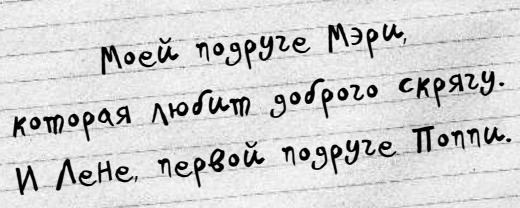 Моей подруге Мэри,
которая любит доброго скрягу.
И Лене, первой подруге Поппи.